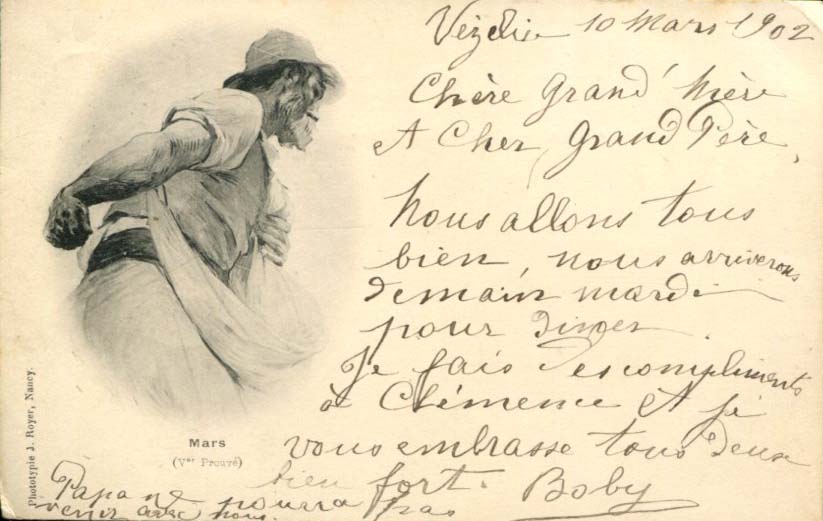 Vézelise 10 Mars 1902
Chère Grand' Mère
et Cher Grand Père,
Nous allons tous
bien, nous arriverons
demain mardi
pour diner.
Je fais des compliments
à Clémence et je
vous embrasse tous deux
bien fort. Boby
Papa ne pourra pas
venir avec nous.
Mars
(Vor Prouvé)
Phototypie J. Royer, Nancy.